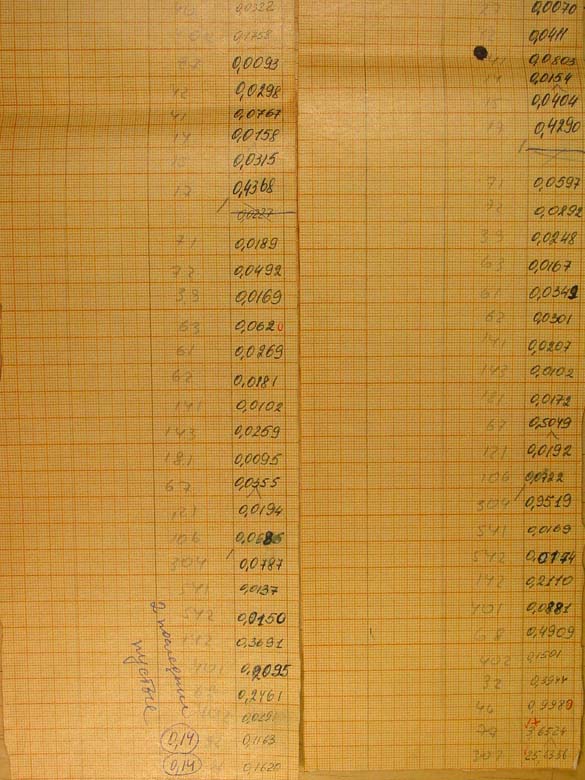 0,0322
0,1758
0,0093
12 0,0298
41 0,0767
14 0,0158
15 0,0315
17 0,4368
71 0,0189
72 0,0492
39 0,0169
63 0,0620
61 0,0269
62 0,0181
141 0,0102
143 0,0259
181 0,0095
67 0,0355
121 0,0194
106
304 0,0787
541 0,0137
542 0,0150
142 0,3691
401 0,2095
0,2461
0,1163
0,1620
2 последние
пустые
0,14
0,14
0,0070
12 0,0411
41 0,0803
14 0,0154
15 0,0404
17 0,4290
71 0,0597
72 0,0292
39 0,0248
63 0,0167
61 0,0349
62 0,0301
141 0,0207
143 0,0102
181 0,0172
67 0,5049
121 0,0192
106 0,0722
304 0,9519
541 0,0169
542 0,0174
142 0,2110
401 0,0881
68 0,4909
402 0,1501
32 0,3944
46 0,9989